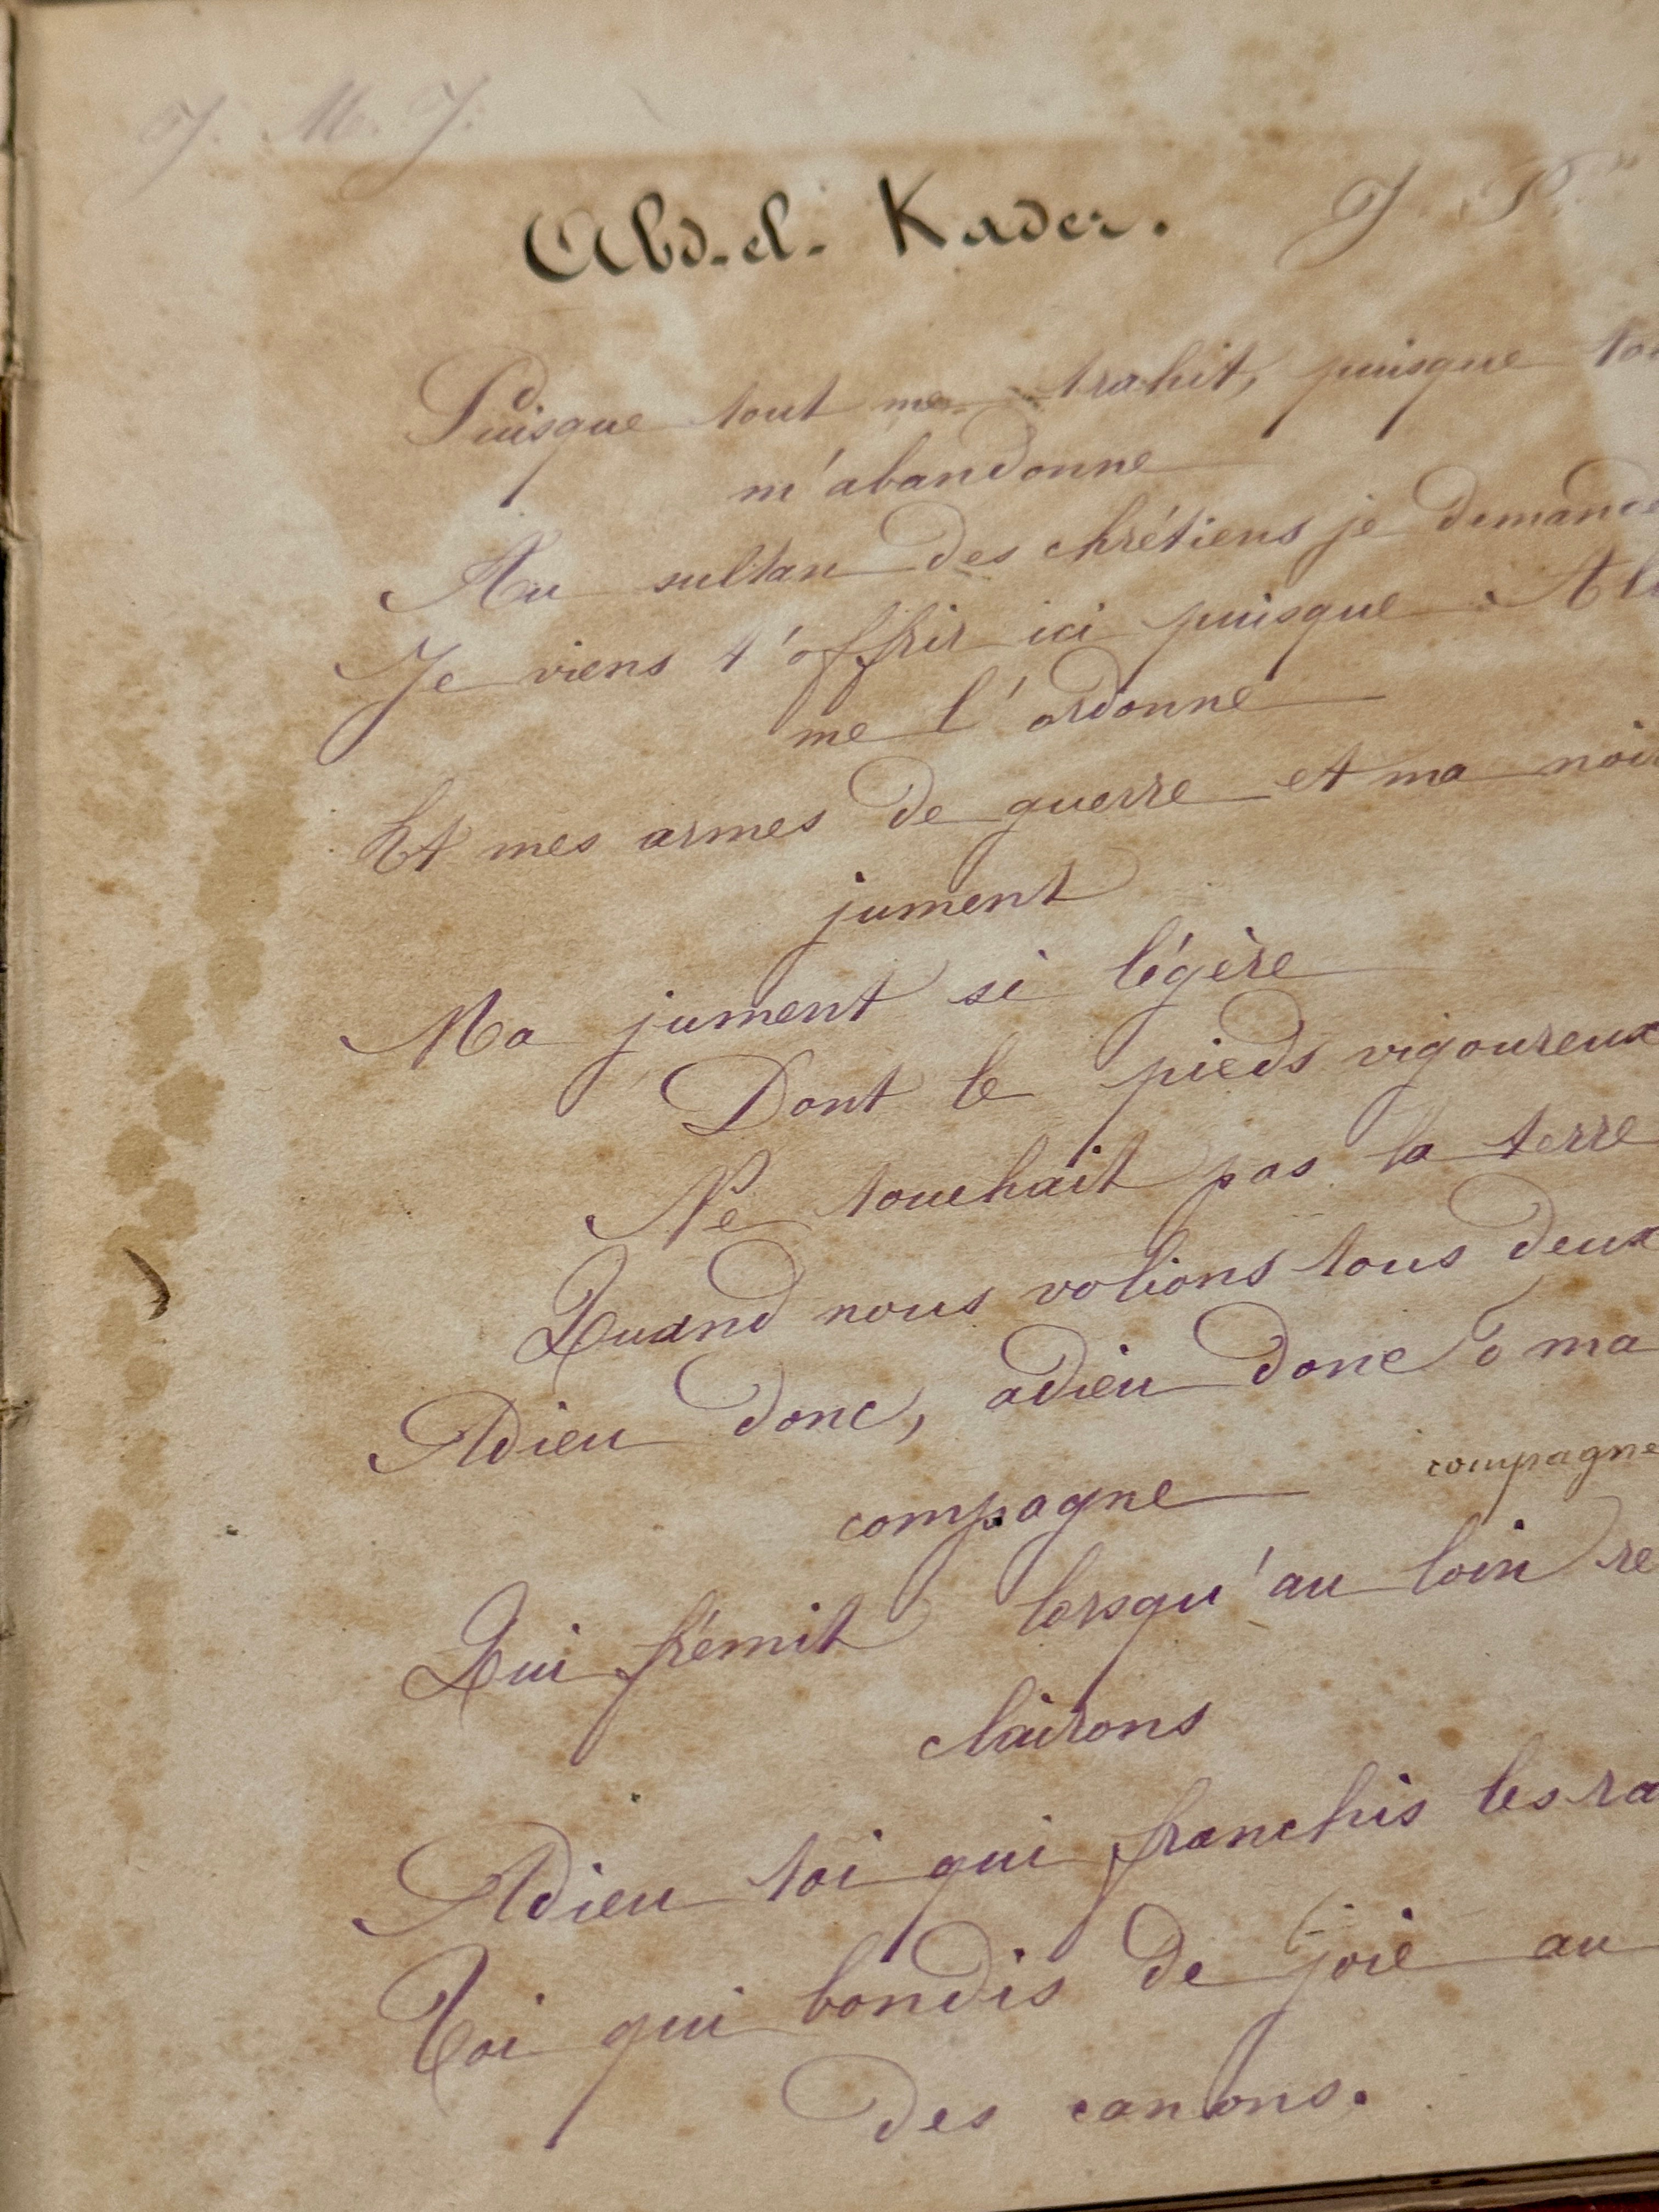 J. M. J.
Abd-el-Kader.
Puisque tout me trahit, puisque
m'abandonne
Au sultan des chrétiens je demande
Je viens t'offrir ici puisque
me l'ordonne
Et mes armes de guerre et ma
jument
Ma jument si légère
Dont le pieds vigoureux
Ne touchait pas la terre
Quand nous volions tous deux
Adieu donc, adieu donc ô ma
compagne compagne
Qui frémit lorsqu'au loin re
clairons
Adieu toi qui franchis les ra
Toi qui bondis de joie au
des canons.